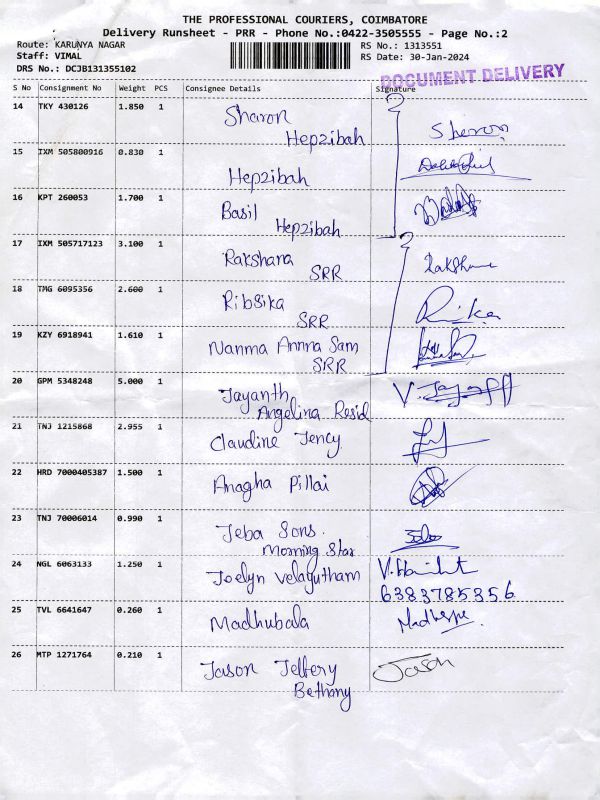 THE PROFESSIONAL COURIERS, COIMBATORE
Delivery Runsheet - PRR - Phone No.:0422-3505555 - Page No.:2
Route: KARUNYA NAGAR RS No.: 1313551
Staff: VIMAL RS Date: 30-Jan-2024
DRS No.: DCJB131355102
DOCUMENT DELIVERY
S No Consignment No Weight PCS Consignee Details Signature
14 TKY 430126 1.850 1 Sharon
Hepzibah Sharon
15 IXM 505800916 0.830 1
Hepzibah
16 KPT 260053 1.700 1 Basil
Hepzibah
17 IXM 505717123 3.100 1 Rakshana Rakshana
SRR
18 TMG 6095356 2.600 1 Ribsika
SRR
19 KZY 6918941 1.610 1 Nanma Annna Sam
SRR
20 GPM 5348248 5.000 1 Jayanth
Angelina Resid
21 TNJ 1215868 2.955 1 Claudine Jency
22 HRD 7000405387 1.500 1 Anagha Pillai
23 TNJ 70006014 0.990 1 Jeba Sons.
Morning Star
24 NGL 6063133 1.250 1 Joelyn Velagutham
6383785356
25 TVL 6641647 0.260 1 Madhubala
26 MTP 1271764 0.210 1 Jason Jeffery Jason
Bethany